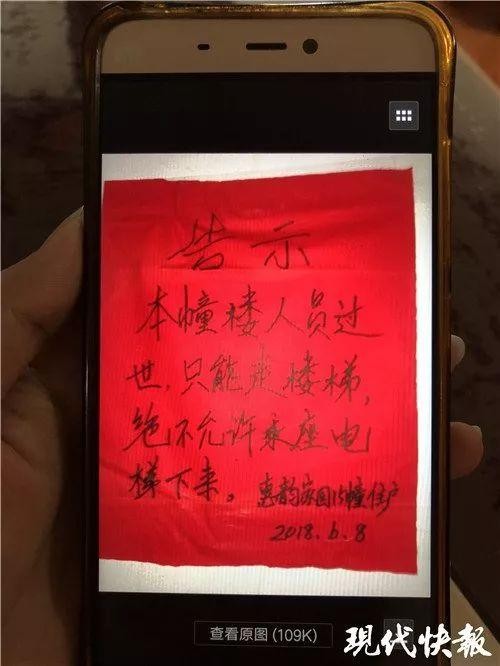 告示
本幢楼人员过
世，只能走楼梯，
绝不允许乘座电
梯下来。
惠韵家园15幢住户
2018.6.8
查看原图(109K)
现代快報